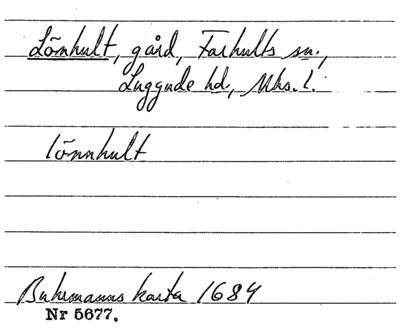 Lönhult, gård, Farhults sn.,
Luggude hd, Mhs. l.
lönnhult
Buhrmanns karta 1684
Nr 5677.